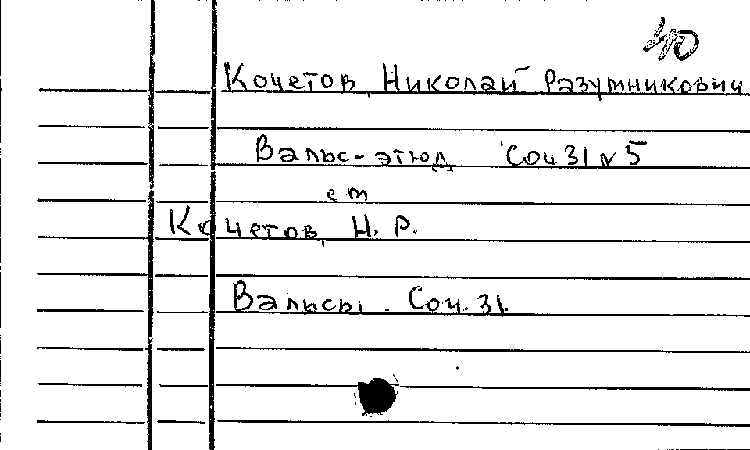 Кочетов, Николай Разумникович
Вальс-этюд Соч 31 № 5
см
Кочетов, Н. Р.
Вальсы. Соч. 31.